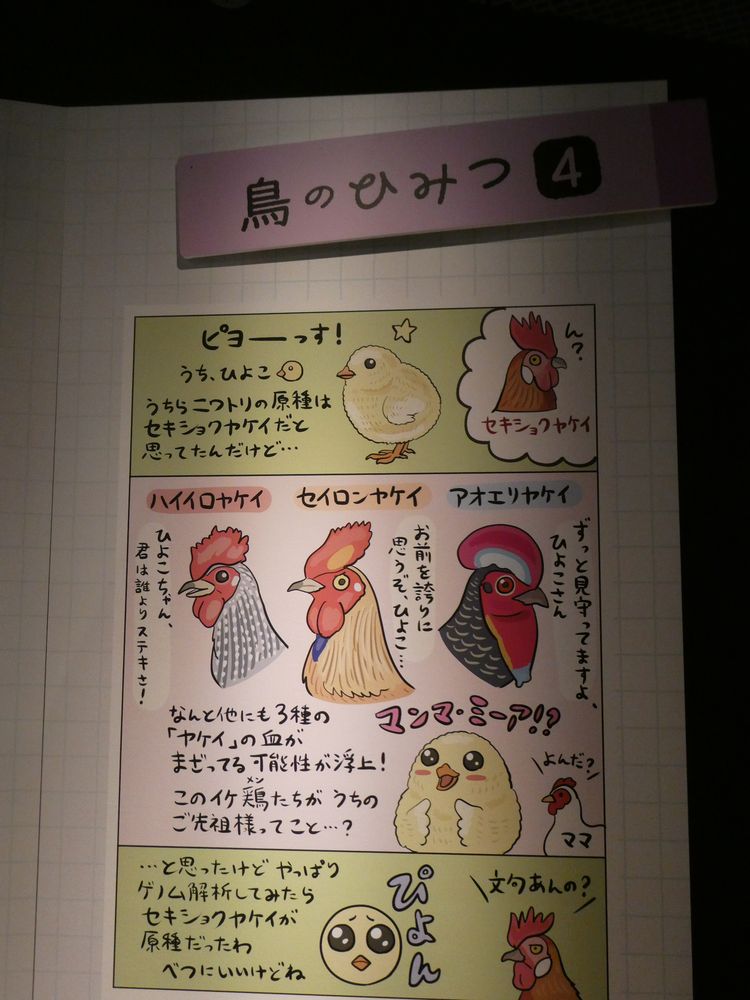 鳥のひみつ 4
ピヨーっす!
うち、ひよこ
うちらニワトリの原種は
セキショクヤケイだと
思ってたんだけど…
ん?
セキショクヤケイ
ハイイロヤケイ
セイロンヤケイ
アオエリヤケイ
ひよこちゃん、
君は誰よりステキさ!
お前を誇りに
思うぞ、ひよこ…
ずっと見守ってますよ、
ひよこさん
なんと他にも3種の
「ヤケイ」の血が
まざってる可能性が浮上!
このイケ鶏たちがうちの
メン
ご先祖様ってこと…?
マンマ・ミーア!?
よんだ?
ママ
…と思ったけど やっぱり
ゲノム解析してみたら
セキショクヤケイが
原種だったわ
べつにいいけどね
ぴよん
文句あんの?